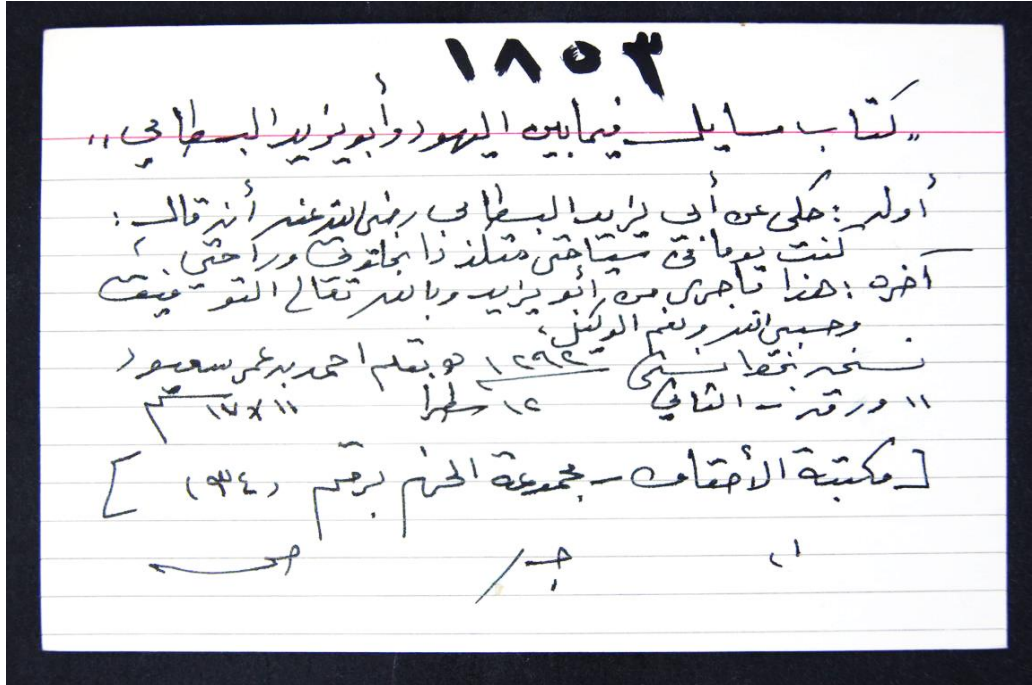 ١٨٥٣
"كتاب مسايل فيما بين اليهود وأبو يزيد البسطامي"
أوله : حكى عن أبي يزيد البسطامي رضي الله عنه أنه قال :
كنت يوما في سياحتي متلذذا بخلوتي وراحتي ،
آخره : هذا ما جرى من أبو يزيد وبالله تعالى التوفيق
وحسبي الله ونعم الوكيل ،
نسخة بخط نسخي ١٢٩٢ هـ بقلم احمد بن عمر
١١ ورقة - الثاني ١٢ سطرا ١١ × ١٧ سم
[ مكتبة الأحقاف - مجموعة الحزم برقم (٩٣٤) ]